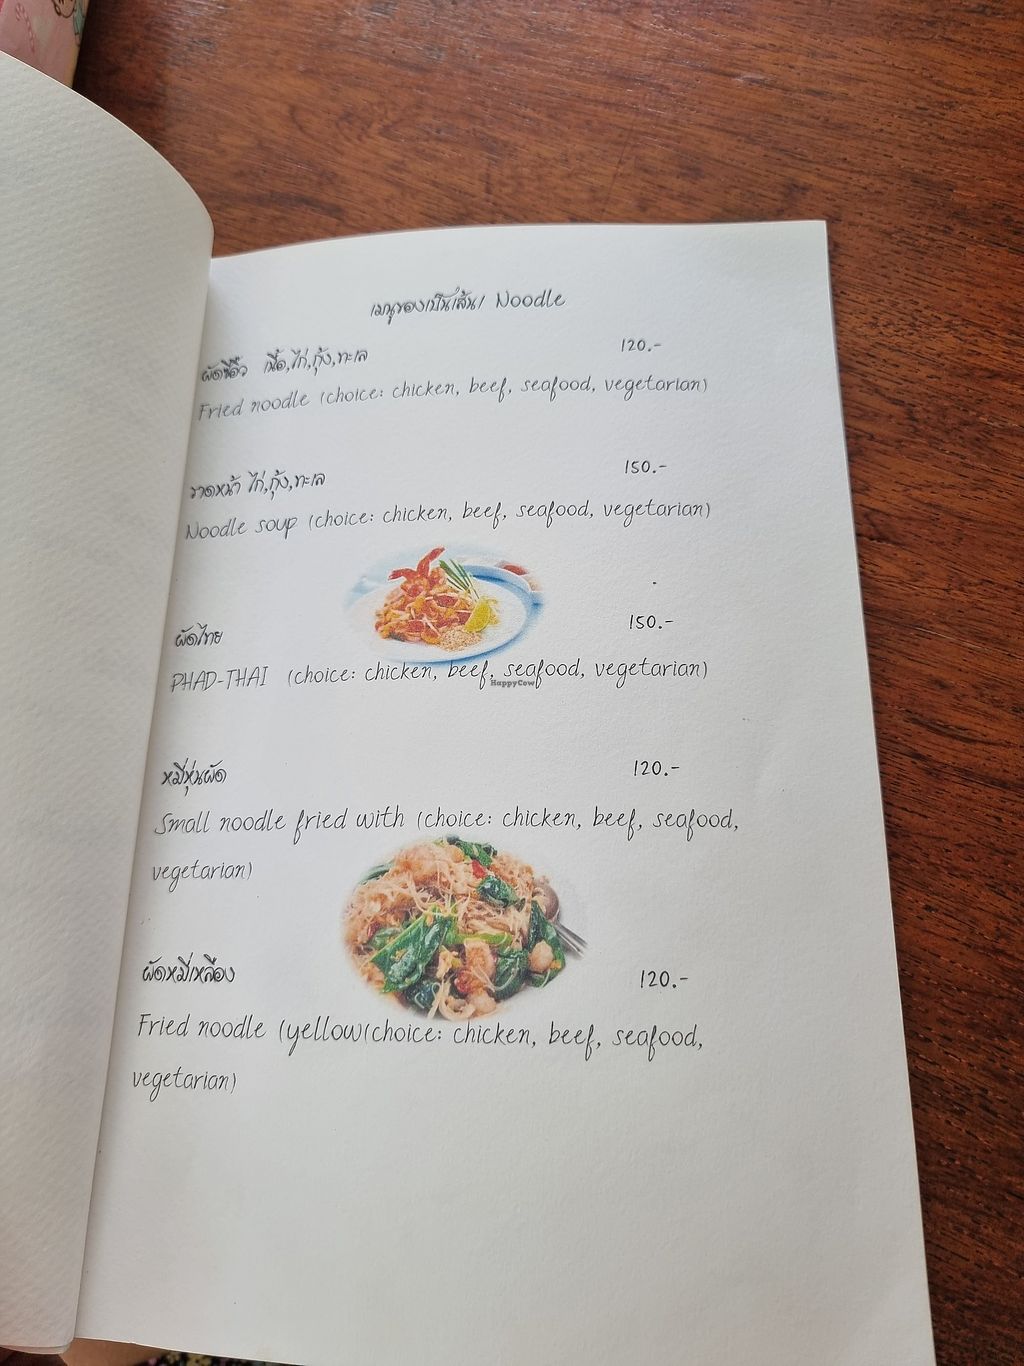 เมนูของเป็นเส้น/ Noodle
ผัดซีอิ๊ว เนื้อ,ไก่,กุ้ง,ทะเล 120.-
Fried noodle (choice: chicken, beef, seafood, vegetarian)
ราดหน้า ไก่,กุ้ง,ทะเล 150.-
Noodle soup (choice: chicken, beef, seafood, vegetarian)
ผัดไทย 150.-
PHAD-THAI (choice: chicken, beef, seafood, vegetarian)
HappyCow
หมี่หุ่นผัด 120.-
Small noodle fried with (choice: chicken, beef, seafood,
vegetarian)
ผัดหมี่เหลือง 120.-
Fried noodle (yellow(choice: chicken, beef, seafood,
vegetarian)